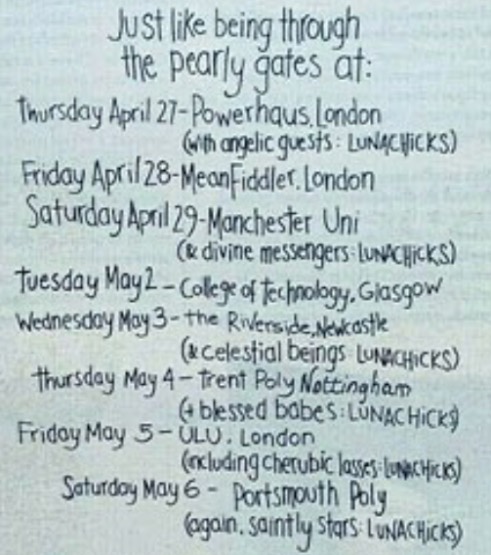 Just like being through
the pearly gates at:
Thursday April 27-Powerhaus, London
(with angelic guests: LUNACHICKS)
Friday April 28-Mean Fiddler, London
Saturday April 29-Manchester Uni
(& divine messengers: LUNACHICKS)
Tuesday May 2 - College of Technology, Glasgow
Wednesday May 3 - the Riverside, Newcastle
(& celestial beings LUNACHICKS)
Thursday May 4 - Trent Poly Nottingham
(+ blessed babes: LUNACHICKS)
Friday May 5 - ULU, London
(including cherubic lasses: LUNACHICKS)
Saturday May 6 - Portsmouth Poly
(again, saintly stars: LUNACHICKS)